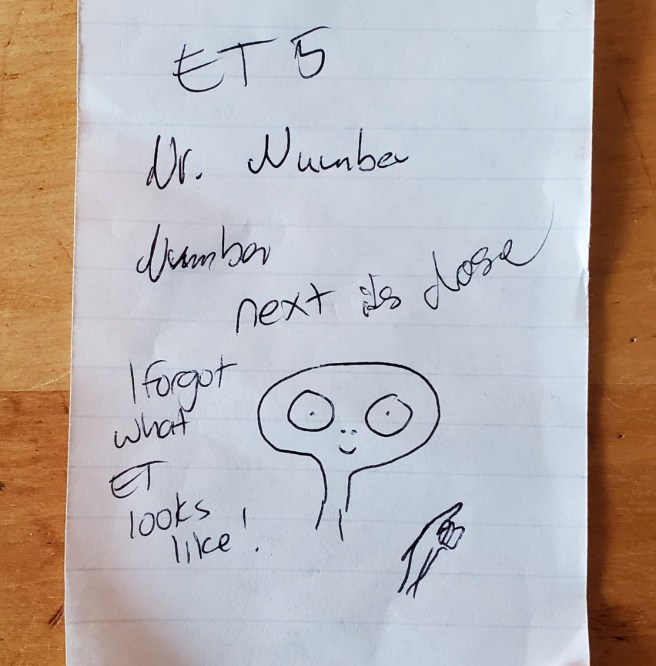 ET 5
Nr. Number
Number
next is close
I forgot
what
ET
looks
like!